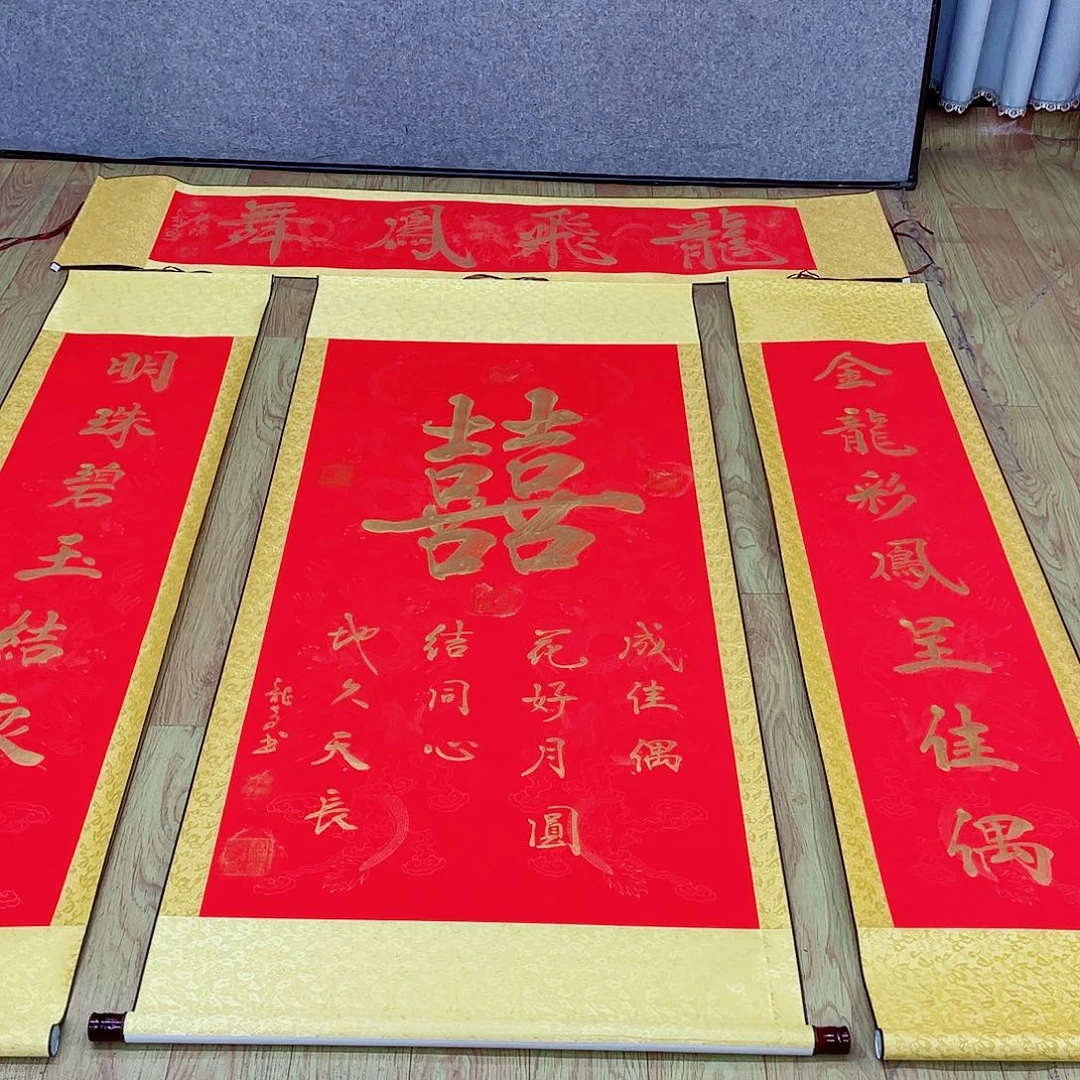 龍飛鳳舞
金龍彩鳳呈佳偶
囍
成佳偶
花好月圓
結同心
地久天長
明珠碧玉結良